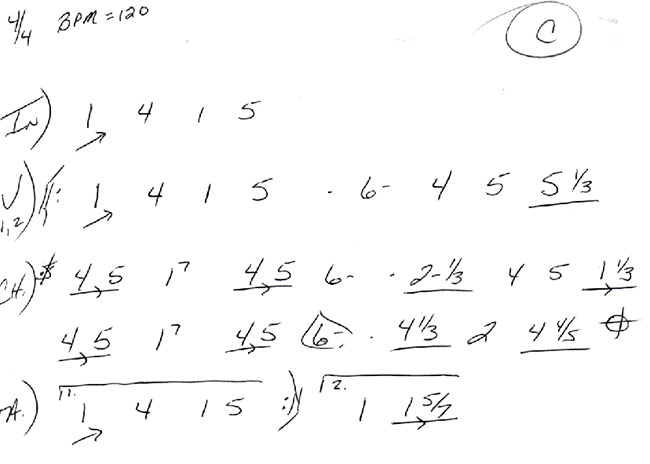 4/4 BPM = 120 C
In) 1 4 1 5
V) 1,2) 𝄆 1 4 1 5 · 6- 4 5 5 1/3
CH.) 4 5 1⁷ 4 5 6- · 2- 1/3 4 5 1 1/3
4 5 1⁷ 4 5 6- · 4 1/3 2 4 4/5 𝄌
A.) 1. 1 4 1 5 :// 2. 1 1 5/7